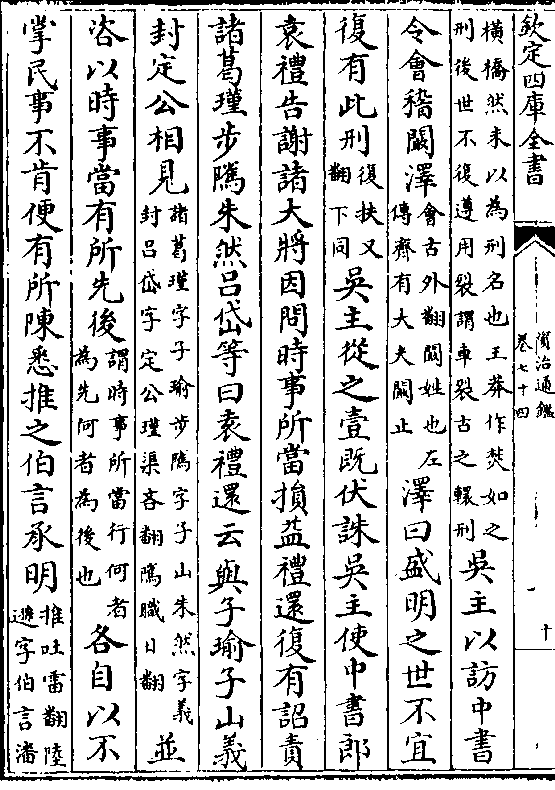 欽定四庫全書
資治通鑑
卷七十四
十
橫橋然未以為刑名也王莽作焚如之
刑後世不復遵用裂謂車裂古之轘刑
吳主以訪中書
令會稽闞澤
會古外翻闞姓也左
傳齊有大夫闞止
澤曰盛明之世不宜
復有此刑
復扶又
翻下同
吳主從之壹既伏誅吳主使中書郎
袁禮告謝諸大將因問時事所當損益禮還復有詔責
諸葛瑾步騭朱然呂岱等曰袁禮還云與子瑜子山義
封定公相見
諸葛瑾字子瑜步騭字子山朱然字義
封呂岱字定公瑾渠吝翻騭職日翻
並
咨以時事當有所先後
謂時事所當行何者
為先何者為後也
各自以不
掌民事不肯便有所陳悉推之伯言承明
推吐雷翻陸
遜字伯言潘